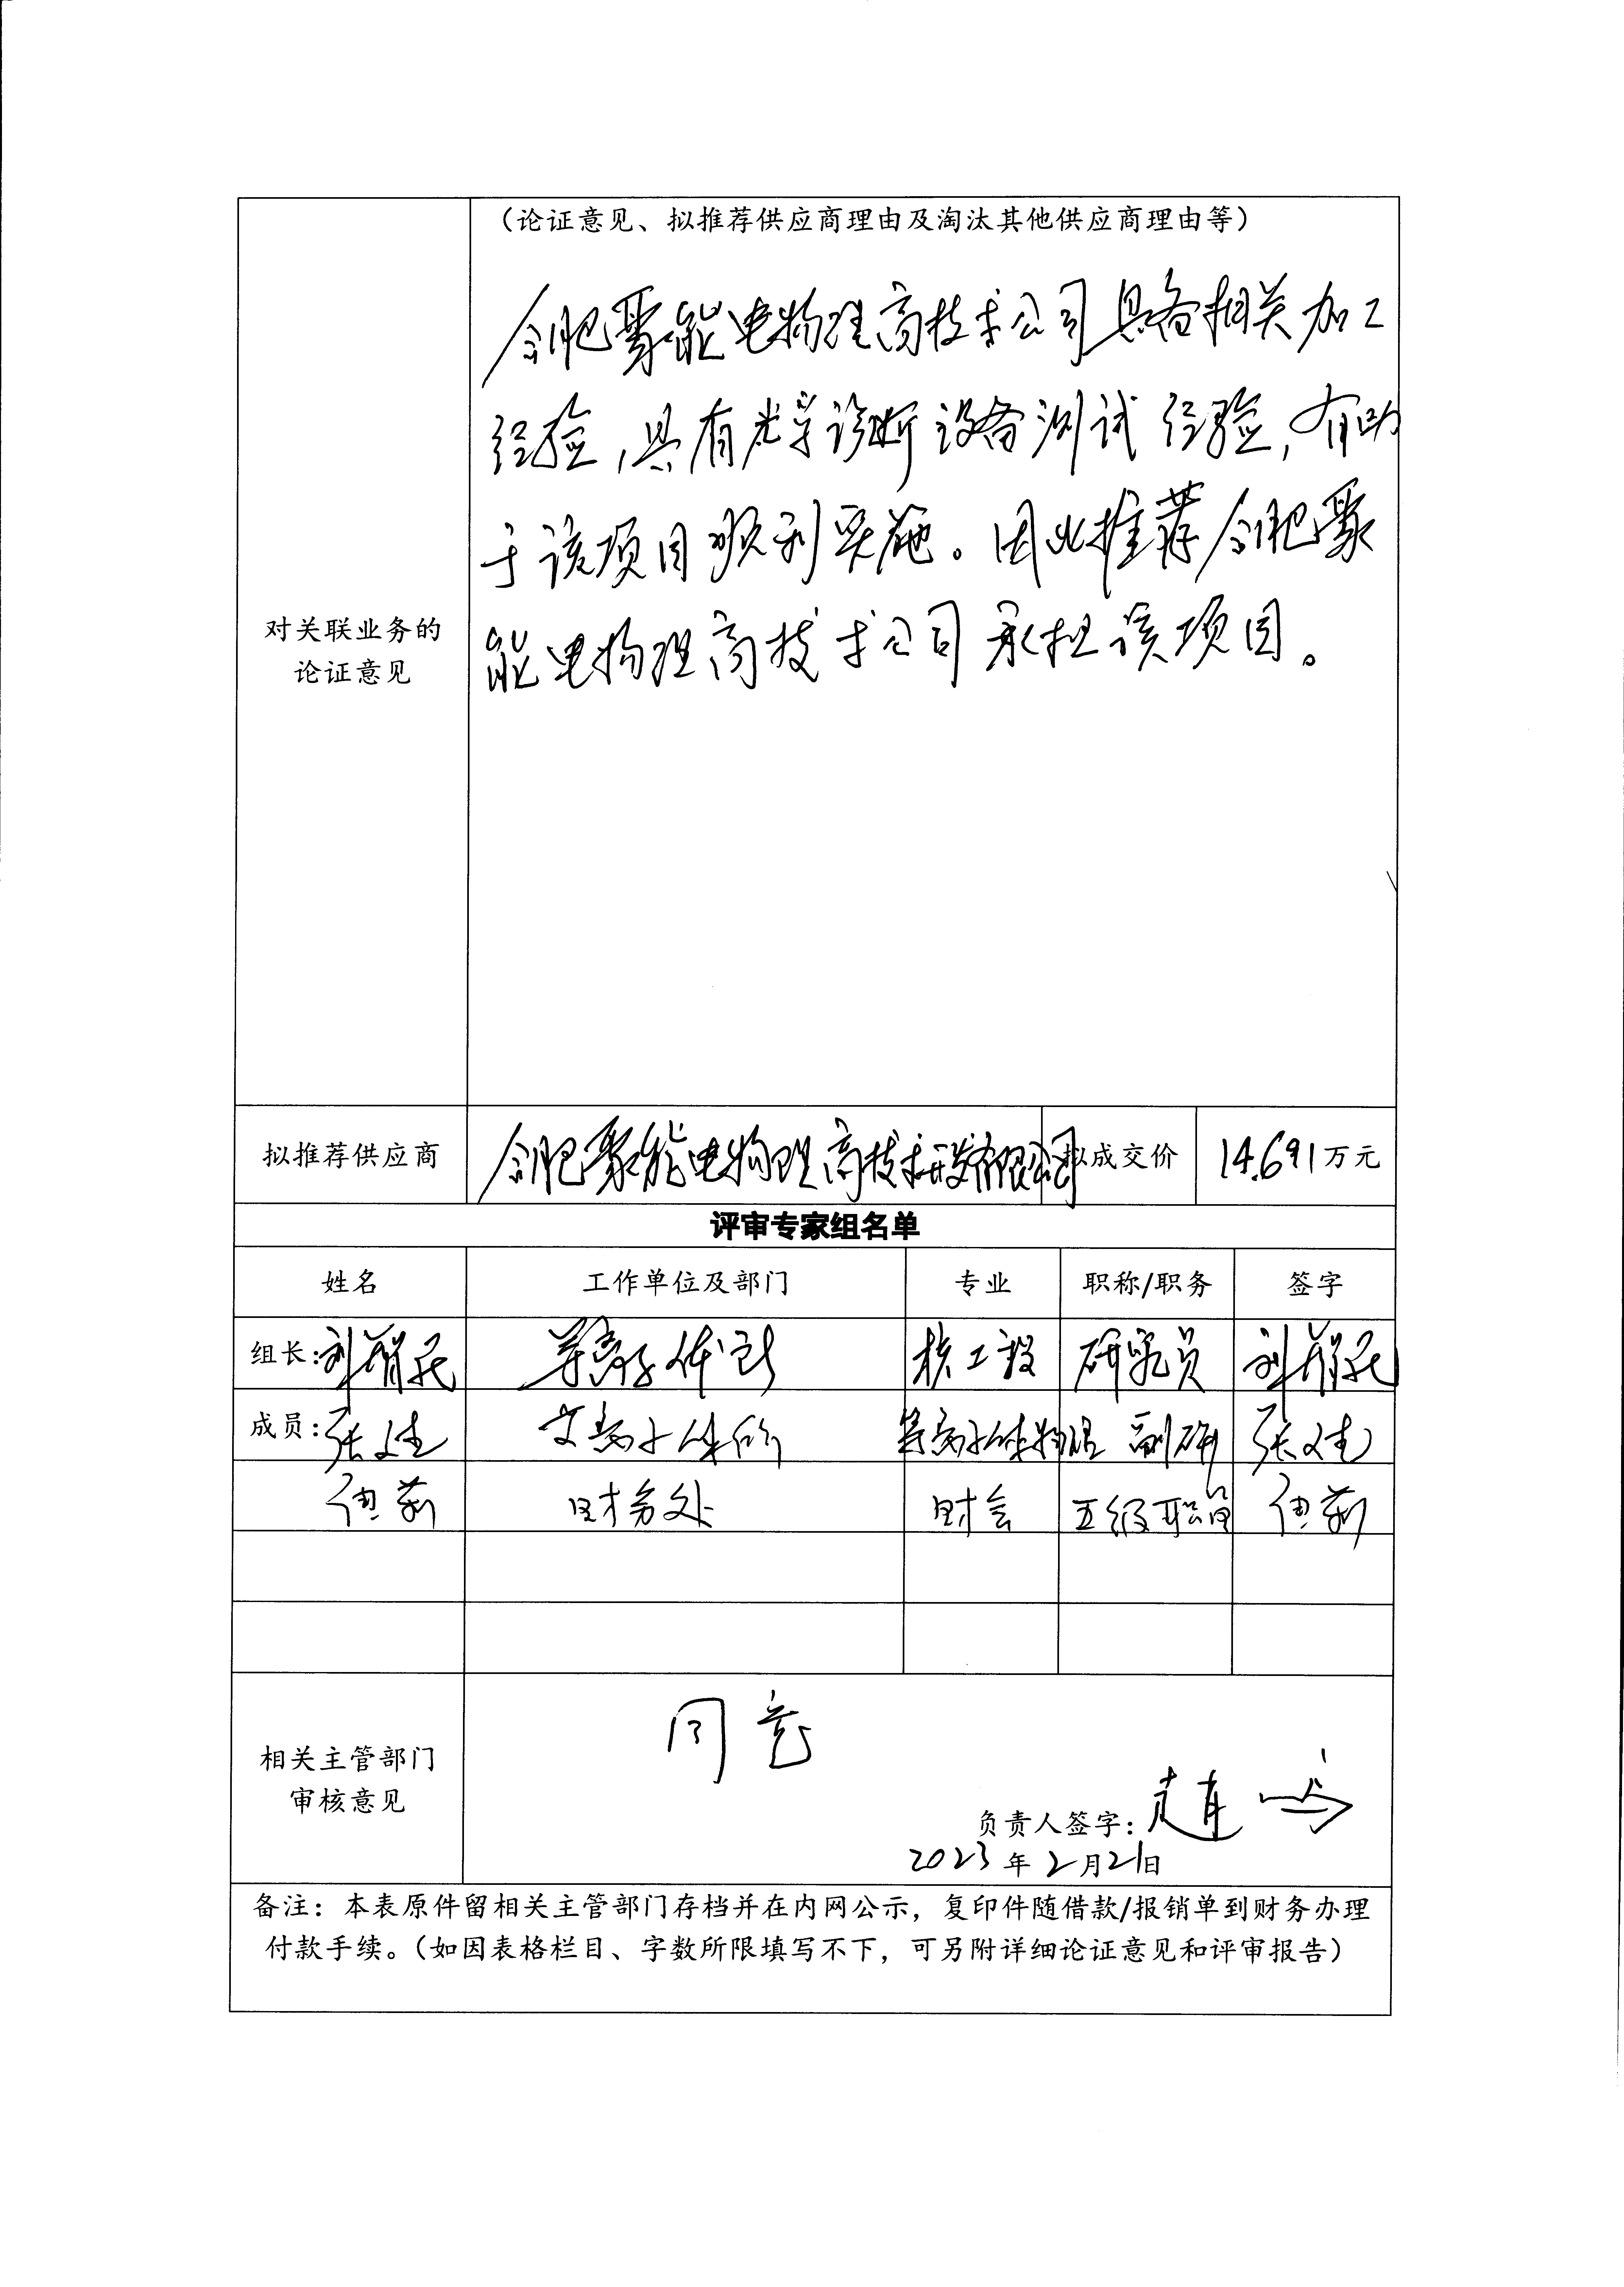 （论证意见、拟推荐供应商理由及淘汰其他供应商理由等）
合肥聚能电物理高技术公司具备相关加工
经验，具有光学诊断设备测试经验，有助
于该项目顺利实施。因此推荐合肥聚
能电物理高技术公司承担该项目。
对关联业务的
论证意见
拟推荐供应商 合肥聚能电物理高技术开发有限公司 拟成交价 14.691万元
评审专家组名单
姓名 工作单位及部门 专业 职称/职务 签字
组长： 等离子体所 核工程 研究员
成员：张 等离子体所 等离子体物理 副研 张
财务处 财会 五级职员
相关主管部门
审核意见
同意
负责人签字：赵
2023年2月21日
备注：本表原件留相关主管部门存档并在内网公示，复印件随借款/报销单到财务办理
付款手续。（如因表格栏目、字数所限填写不下，可另附详细论证意见和评审报告）